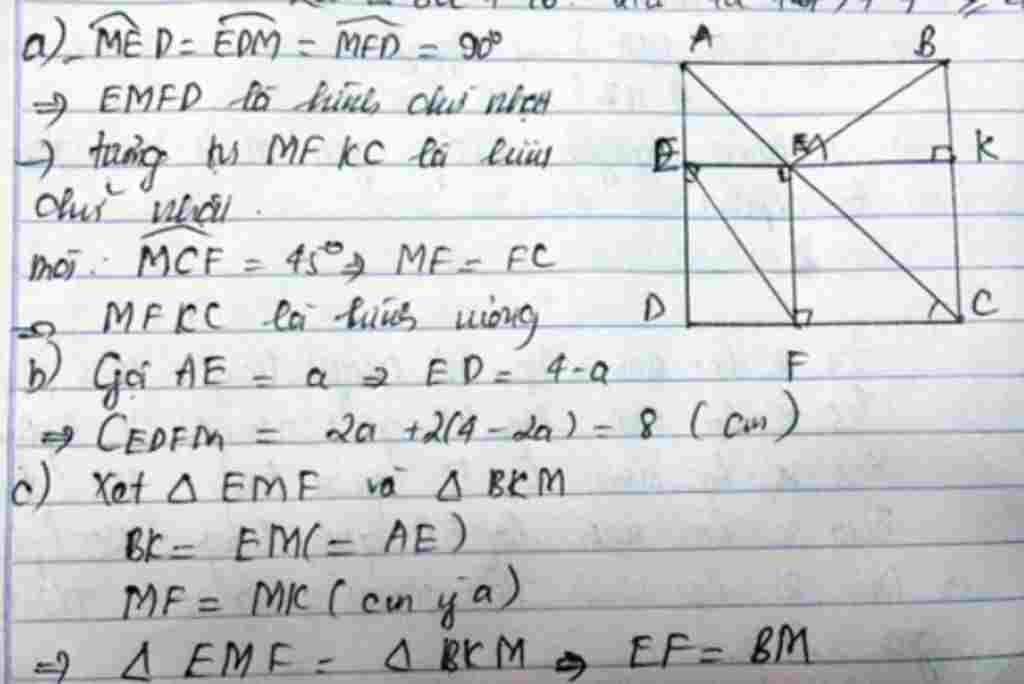 a) MÊD = EDM = MFD = 90°
⇒ EMFD là hình chữ nhật
→ tương tự MFKC là hình
chữ nhật.
mà: MCF = 45° ⇒ MF = FC
⇒ MFKC là hình vuông
b) Gọi AE = a ⇒ ED = 4-a
⇒ CEDFM = 2a + 2(4 - 2a) = 8 (cm)
c) Xét Δ EMF và Δ BKM
BK = EM (= AE)
MF = MK (cm ý a)
⇒ Δ EMF = Δ BKM ⇒ EF = BM
A B
E M K
D C
F